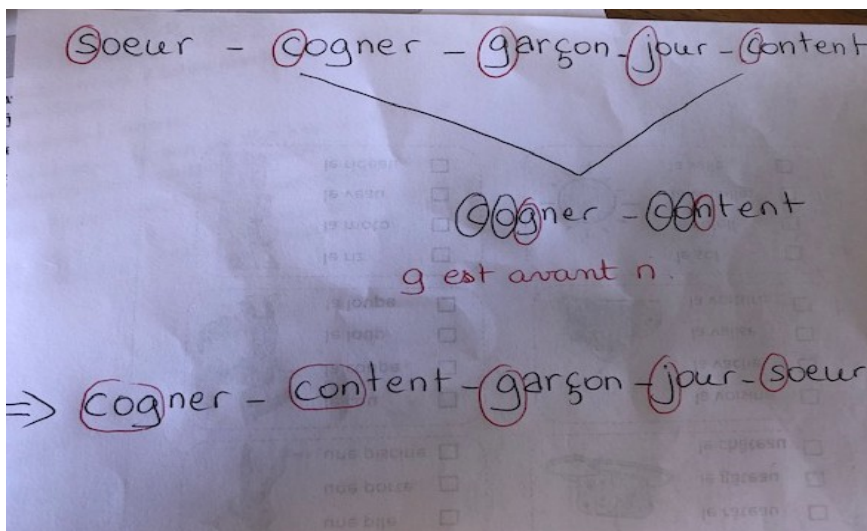 soeur - cogner - garçon - jour - content
cogner - content
g est avant n.
⇒ cogner - content - garçon - jour - soeur